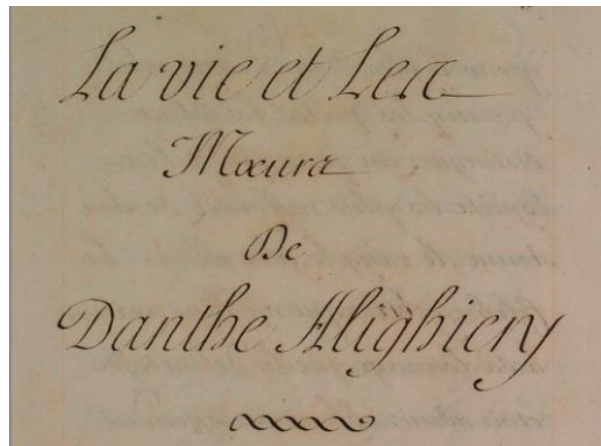 La vie et Les
Mœurs
De
Danthe Alighiery